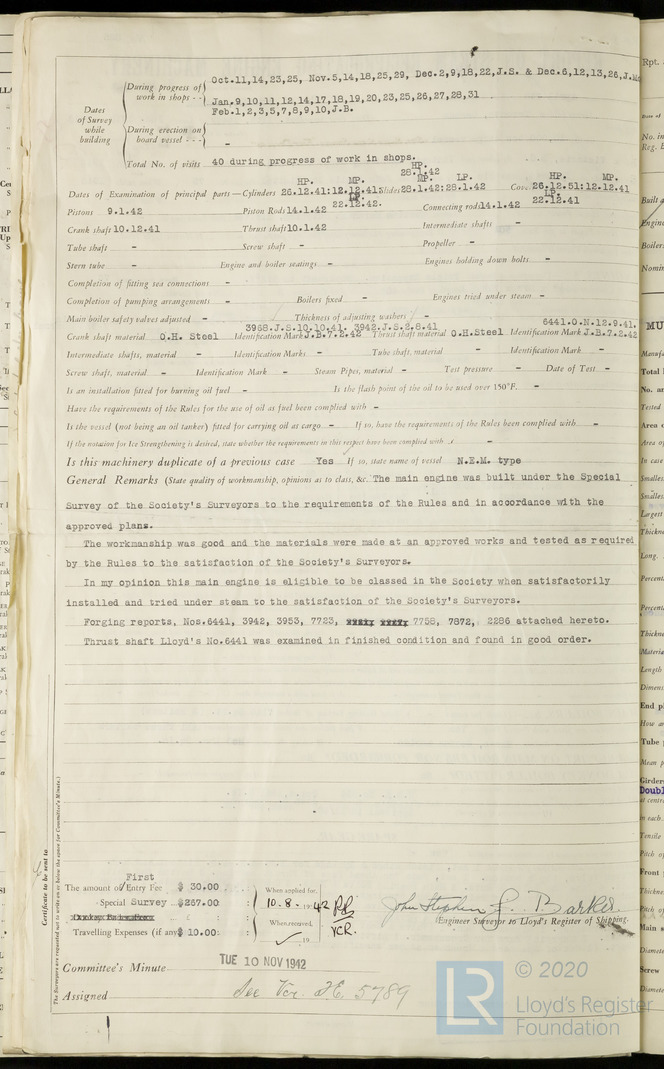 Oct.11,14,23,25, Nov.5,14,18,25,29, Dec.2,9,18,22,J.S. & Dec.6,12,13,26,J.
During progress of work in shops - -
Jan.9,10,11,12,14,17,18,19,20,23,25,26,27,28,31
Feb.1,2,3,5,7,8,9,10,J.B.
Dates of Survey while building
During erection on board vessel - - - -
Total No. of visits 40 during progress of work in shops.
Dates of Examination of principal parts—Cylinders HP. 26.12.41: MP. 12.12.41 LP. 22.12.42. Slides HP. 28.1.42 MP. 28.1.42: LP. 28.1.42 Cov HP. 26.12.51: MP. 12.12.41 LP. 22.12.41
Pistons 9.1.42 Piston Rods 14.1.42 Connecting rods 14.1.42
Crank shaft 10.12.41 Thrust shaft 10.1.42 Intermediate shafts -
Tube shaft - Screw shaft - Propeller -
Stern tube - Engine and boiler seatings - Engines holding down bolts -
Completion of fitting sea connections -
Completion of pumping arrangements - Boilers fixed - Engines tried under steam -
Main boiler safety valves adjusted - Thickness of adjusting washers -
3968.J.S.10.10.41. 3942.J.S.2.8.41 6441.O.N.12.9.41.
Crank shaft material O.H. Steel Identification Mark J.B.7.2.42 Thrust shaft material O.H.Steel Identification Mark J.B.7.2.42
Intermediate shafts, material - Identification Marks - Tube shaft, material - Identification Mark -
Screw shaft, material - Identification Mark - Steam Pipes, material - Test pressure - Date of Test -
Is an installation fitted for burning oil fuel - Is the flash point of the oil to be used over 150°F. -
Have the requirements of the Rules for the use of oil as fuel been complied with -
Is the vessel (not being an oil tanker) fitted for carrying oil as cargo - If so, have the requirements of the Rules been complied with -
If the notation for Ice Strengthening is desired, state whether the requirements in this respect have been complied with -
Is this machinery duplicate of a previous case Yes If so, state name of vessel N.E.M. type
General Remarks (State quality of workmanship, opinions as to class, &c. The main engine was built under the Special
Survey of the Society's Surveyors to the requirements of the Rules and in accordance with the
approved plans.
The workmanship was good and the materials were made at an approved works and tested as required
by the Rules to the satisfaction of the Society's Surveyors.
In my opinion this main engine is eligible to be classed in the Society when satisfactorily
installed and tried under steam to the satisfaction of the Society's Surveyors.
Forging reports, Nos.6441, 3942, 3953, 7723, 7758, 7872, 2286 attached hereto.
Thrust shaft Lloyd's No.6441 was examined in finished condition and found in good order.
Certificate to be sent to
(The Surveyors are requested not to write on or below the space for Committee's Minute.)
First
The amount of Entry Fee $ 30.00 : When applied for,
Special Survey $267.00 : 10.8.1942
Travelling Expenses (if any) $ 10.00: When received, 19
John Stephen Barker
Engineer Surveyor to Lloyd's Register of Shipping.
Committee's Minute TUE 10 NOV 1942
Assigned See Vcr. F.E. 5789
LR © 2020
Lloyd's Register
Foundation